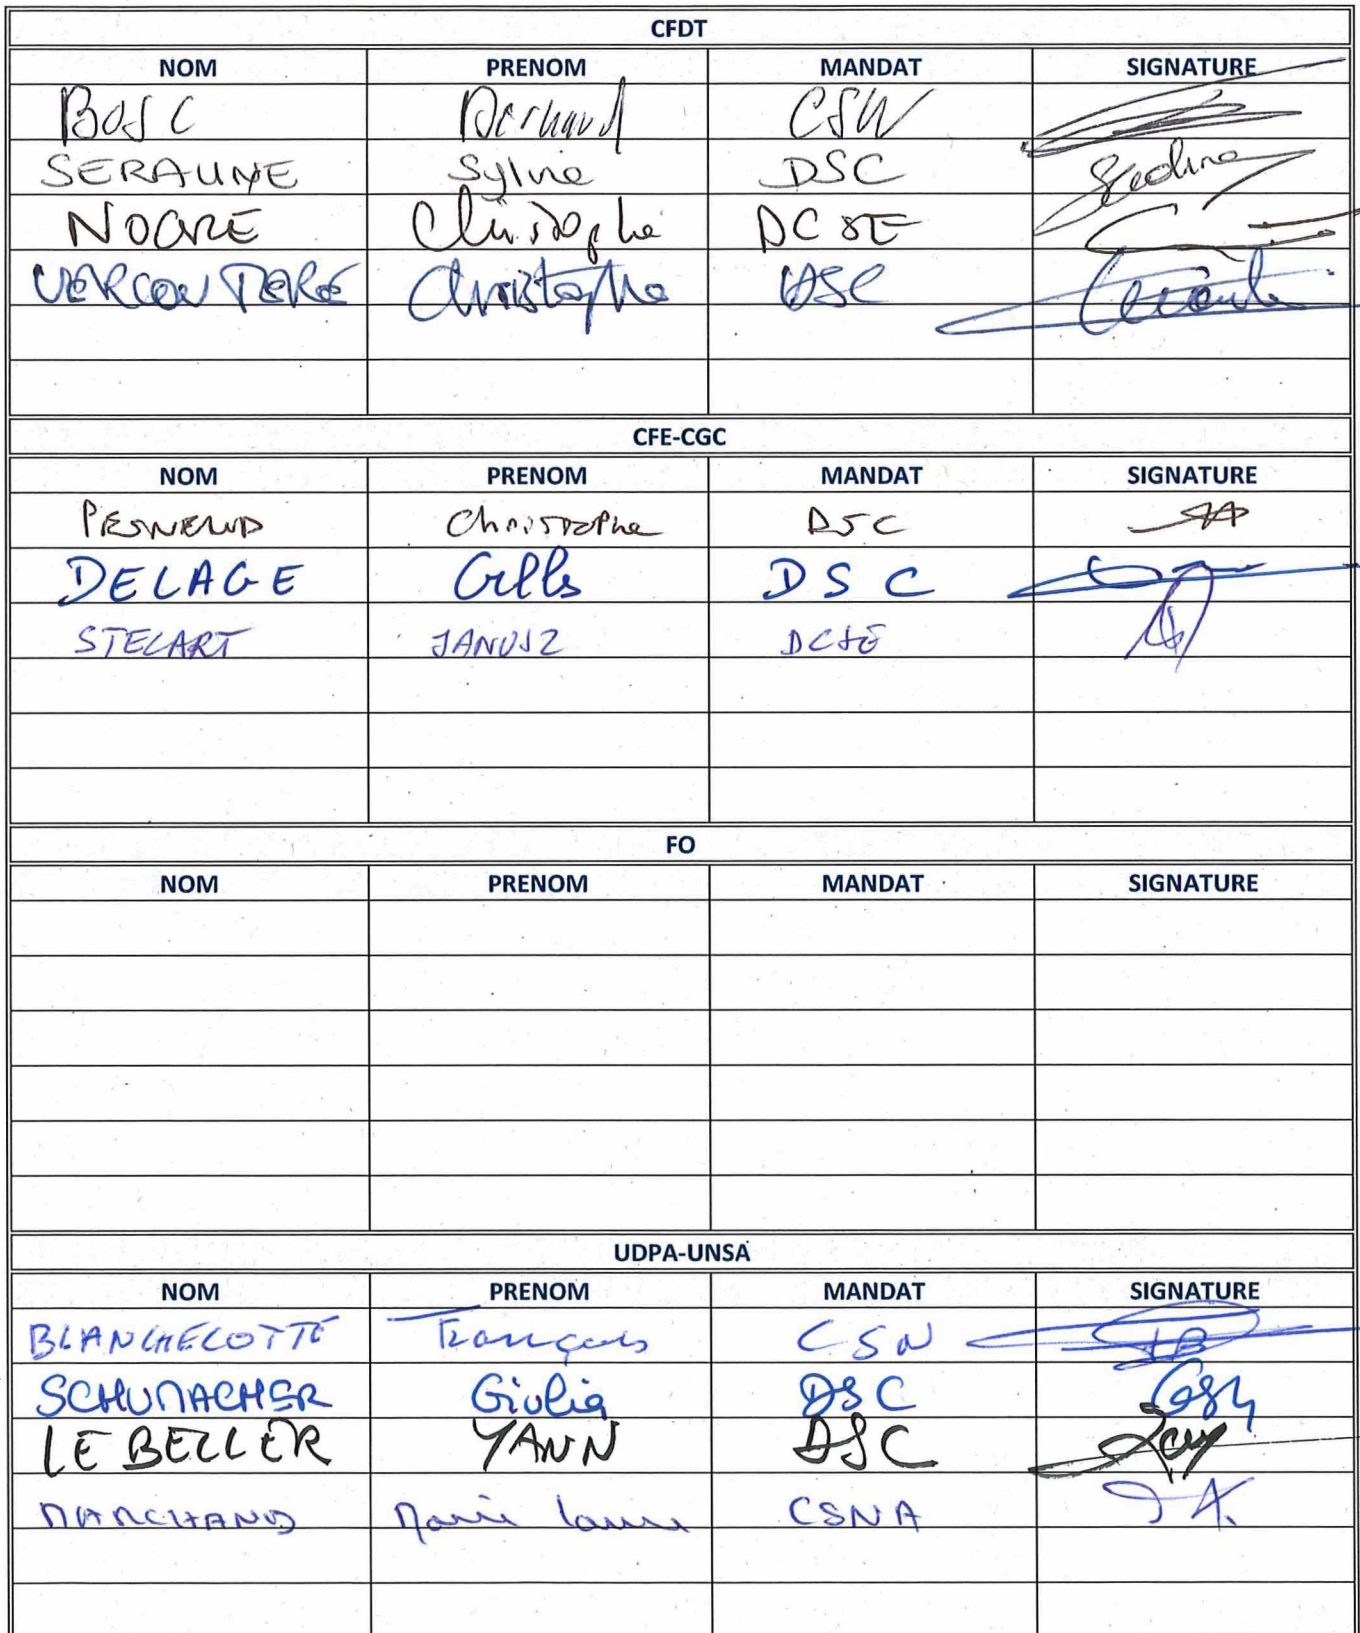 CFDT
NOM PRENOM MANDAT SIGNATURE
BOSC Bernard CSN
SERAUNE Sylvie DSC
NOGRE Christophe DCSE
VERCOUTERE Christophe DSC
CFE-CGC
NOM PRENOM MANDAT SIGNATURE
Christophe DSC
DELAGE Gilles DSC
STELART JANUSZ DCSE
FO
NOM PRENOM MANDAT SIGNATURE
UDPA-UNSA
NOM PRENOM MANDAT SIGNATURE
BLANCHECOTTE François CSN
SCHUMACHER Giulia DSC
LE BELLER YANN DSC
MARCHAND Marie Laure CSNA